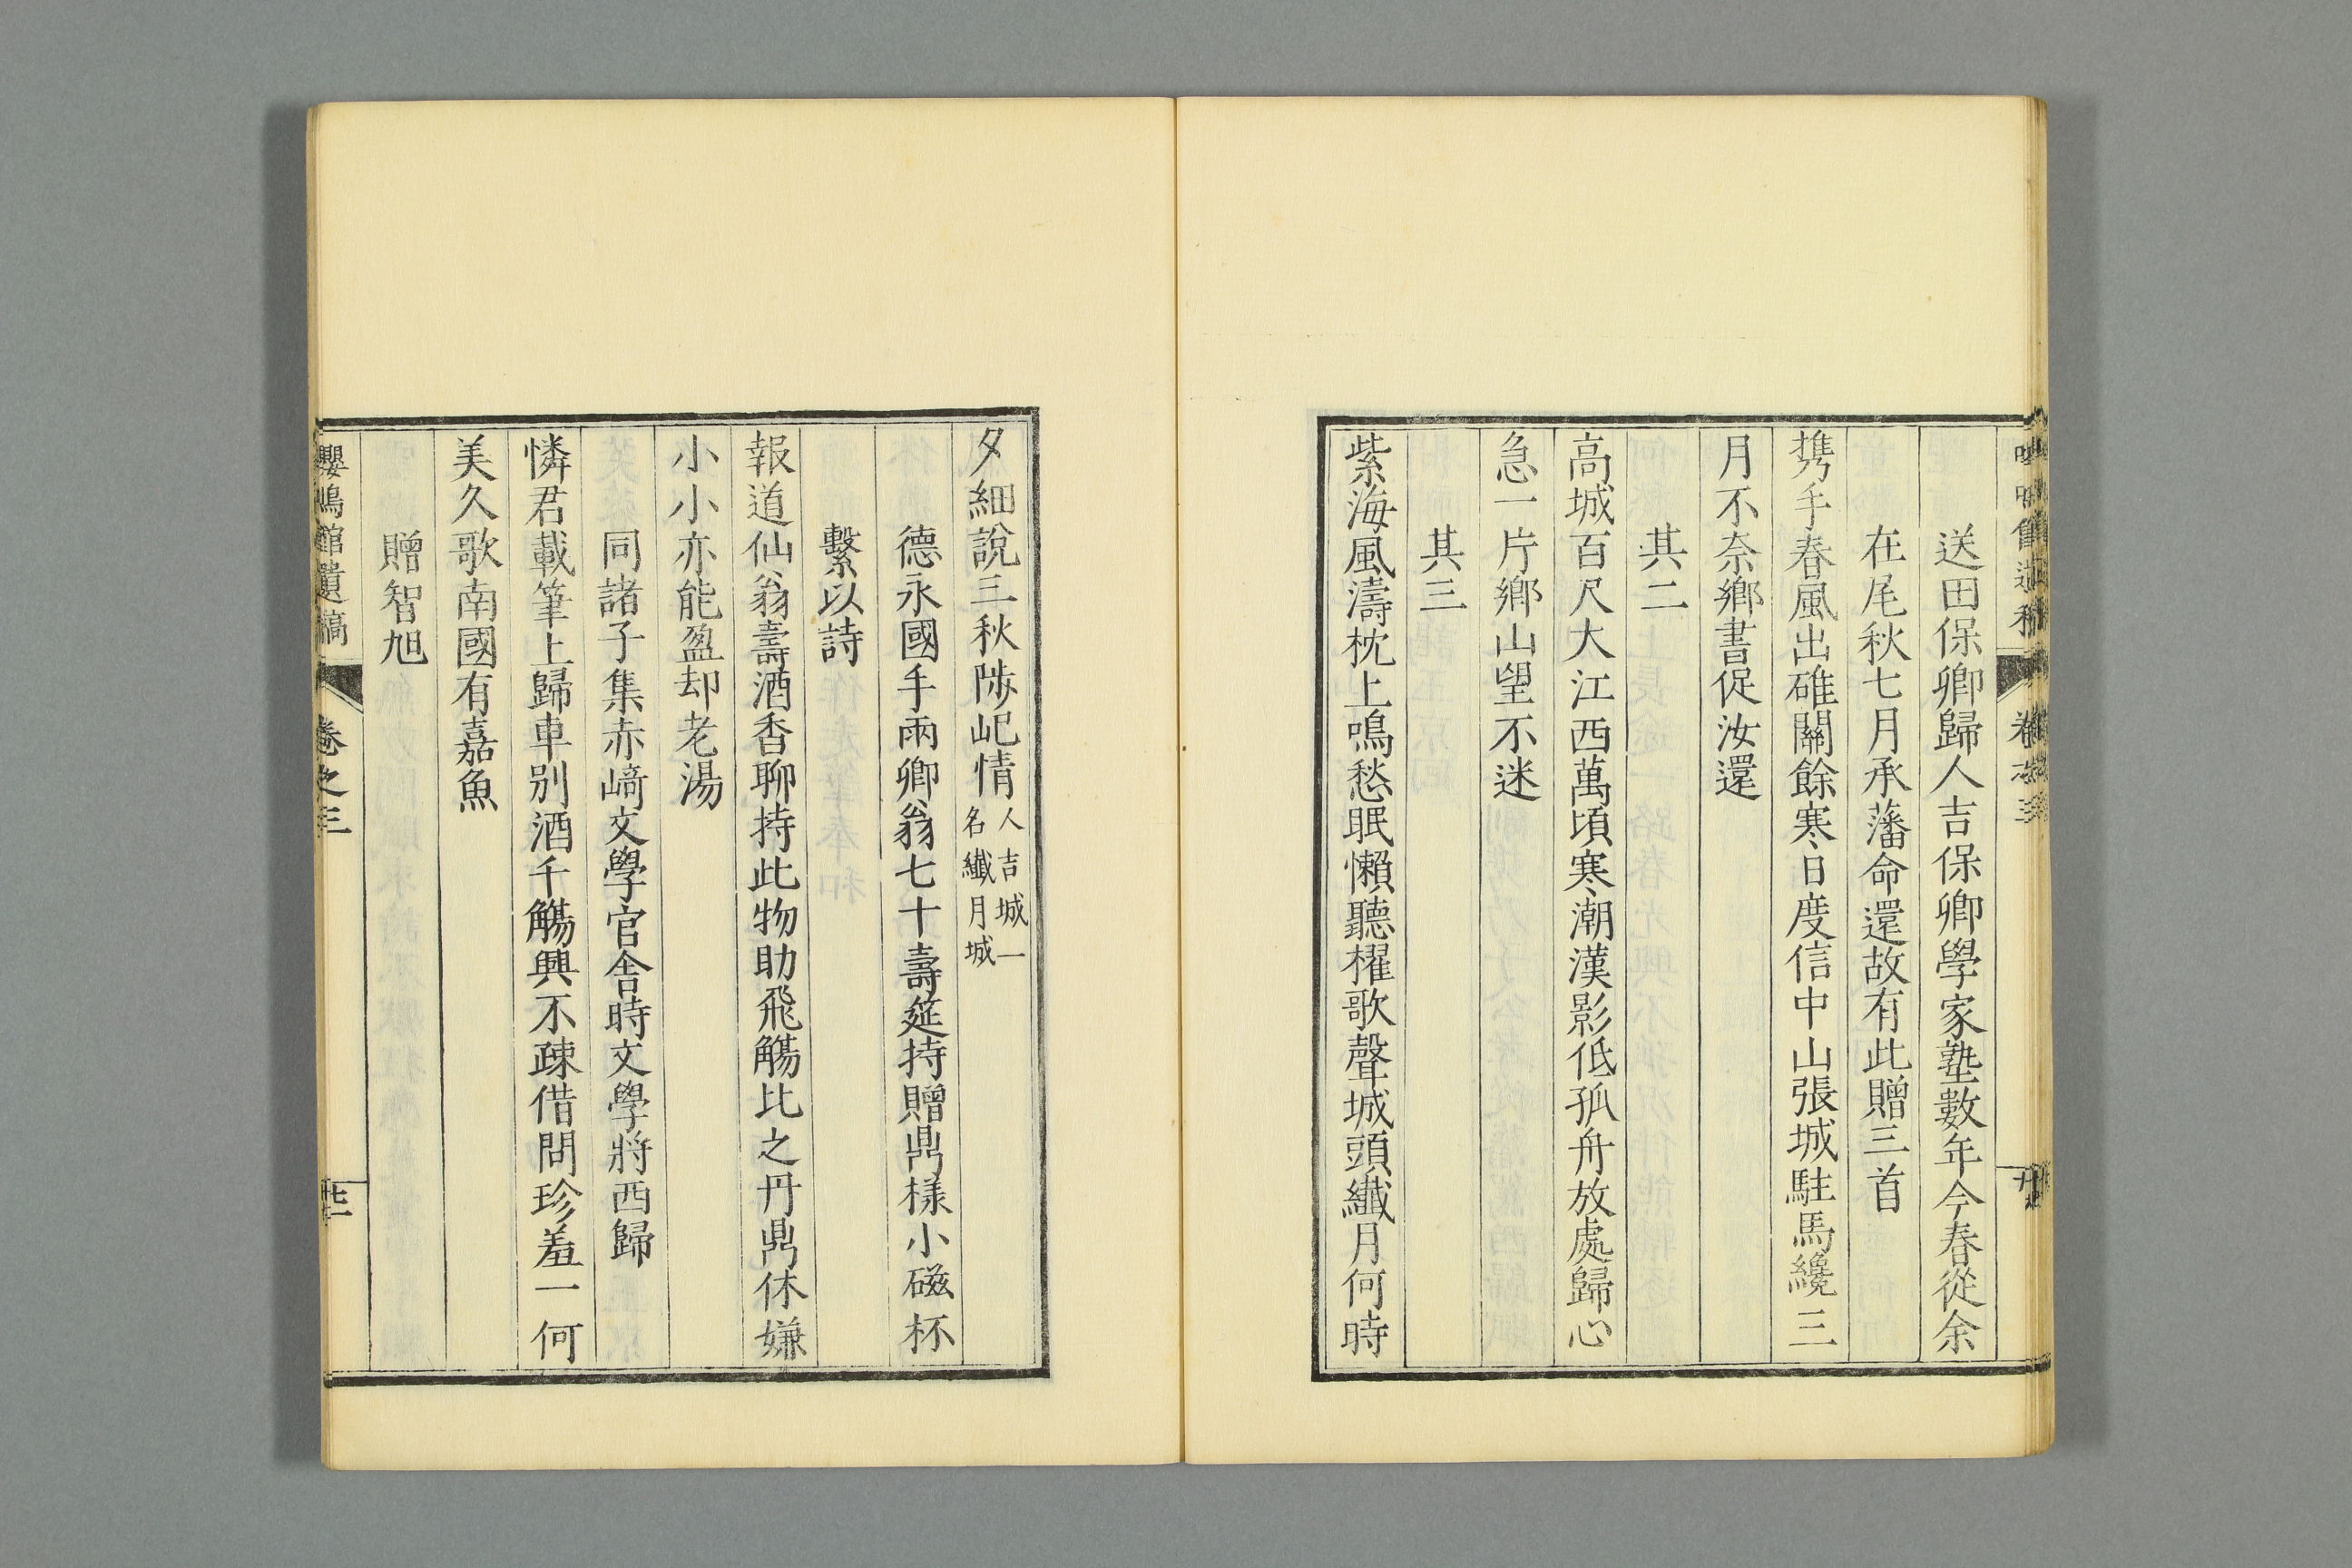 送田保卿歸人吉保卿學家塾數年今春從余
在尾秋七月承藩命還故有此贈三首
携手春風出碓關餘寒日度信中山張城駐馬纔三
月不奈鄉書促汝還
其二
高城百尺大江西萬頃寒潮漢影低孤舟放處歸心
急一片鄉山望不迷
其三
紫海風濤枕上鳴愁眠懶聽櫂歌聲城頭纖月何時
夕細說三秋陟屺情人吉城一名纖月城
德永國手兩卿翁七十壽筵持贈鼎樣小磁杯
繫以詩
報道仙翁壽酒香聊持此物助飛觴比之丹鼎休嫌
小小小亦能盈却老湯
同諸子集赤﨑文學官舍時文學將西歸
憐君載筆上歸車別酒千觴興不疎借問珍羞一何
美久歌南國有嘉魚
贈智旭
嚶鳴館遺稿 卷之三